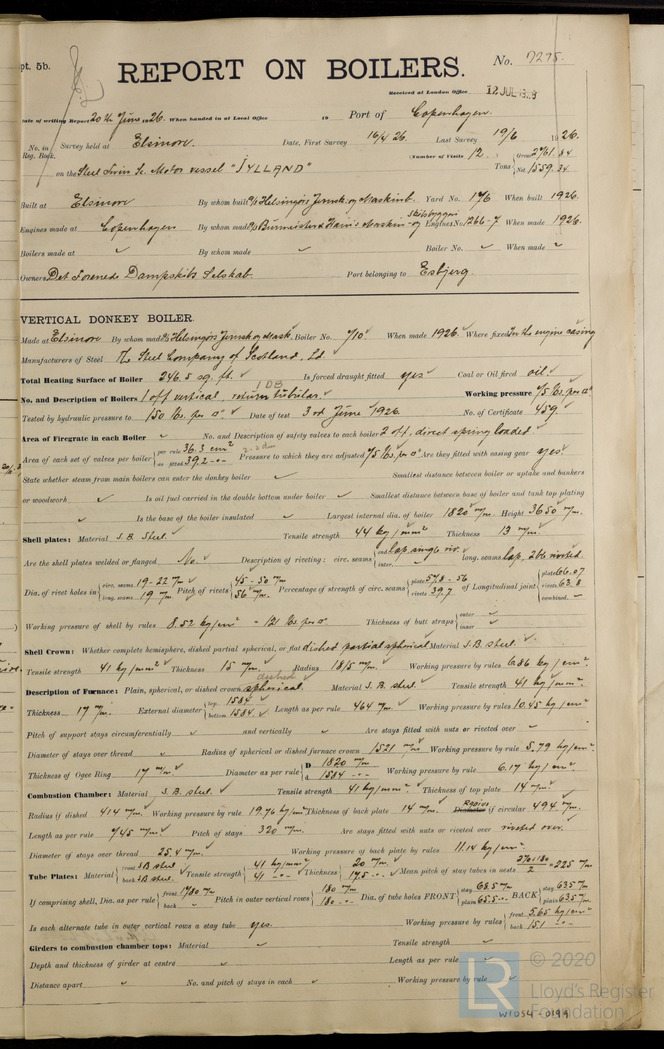 pt. 5b.
REPORT ON BOILERS.
No. 7275.
Received at London Office 12 JUL 1926
Date of writing Report 20th June 1926. When handed in at Local Office 19 Port of Copenhagen.
No. in Reg. Book. Survey held at Elsinore. Date, First Survey 16/4 26. Last Survey 19/6 1926.
(Number of Visits 12.)
on the Steel Twin Sc. Motor vessel "JYLLAND" Tons { Gross 2761.84 Net 1559.34
Built at Elsinore By whom built A/S Helsingørs Jernsk. og Maskinb. Yard No. 176 When built 1926.
Engines made at Copenhagen By whom made A/S Burmeister & Wain's Maskin- og Skibsbyggeri Engines No. 1266-7 When made 1926.
Boilers made at ✓ By whom made ✓ Boiler No. ✓ When made ✓
Owners Det Forenede Dampskibs Selskab. Port belonging to Esbjerg.
VERTICAL DONKEY BOILER.
Made at Elsinore By whom made A/S Helsingørs Jernsk. og Mask. Boiler No. 710 When made 1926. Where fixed In the engine casing
Manufacturers of Steel The Steel Company of Scotland. Ld.
Total Heating Surface of Boiler 246.5 sq. ft. ✓ Is forced draught fitted yes ✓ Coal or Oil fired oil ✓
No. and Description of Boilers 1 off vertical, return tubular. ✓ Working pressure 75 lbs. per □"
Tested by hydraulic pressure to 150 lbs. per □" ✓ Date of test 3rd June 1926. No. of Certificate 459.
Area of Firegrate in each Boiler ✓ No. and Description of safety valves to each boiler 2 off, direct spring loaded ✓
Area of each set of valves per boiler { per rule 36.3 cm² as fitted 39.2 -"- Pressure to which they are adjusted 75 lbs. per □" Are they fitted with easing gear yes.
State whether steam from main boilers can enter the donkey boiler ✓ Smallest distance between boiler or uptake and bunkers
or woodwork ✓ Is oil fuel carried in the double bottom under boiler ✓ Smallest distance between base of boiler and tank top plating
✓ Is the base of the boiler insulated ✓ Largest internal dia. of boiler 1820 m/m. Height 3650 m/m.
Shell plates: Material S.B. Steel. Tensile strength 44 kg/mm² Thickness 13 m/m.
Are the shell plates welded or flanged No ✓ Description of riveting: circ. seams { end lap, single riv. inter. ✓ long. seams lap, dbl. riveted
Dia. of rivet holes in { circ. seams 19-22 m/m long. seams 19 m/m Pitch of rivets { 45-50 m/m 56 m/m Percentage of strength of circ. seams { plate 57.8-56 rivets 39.7 of Longitudinal joint { plate 66.07 rivets 63.8 combined. ✓
Working pressure of shell by rules 8.52 kg/cm² = 121 lbs. per □" Thickness of butt straps { outer ✓ inner ✓
Shell Crown: Whether complete hemisphere, dished partial spherical, or flat dished partial spherical Material S.B. steel.
Tensile strength 41 kg/mm² Thickness 15 m/m. Radius 1815 m/m. Working pressure by rules 6.86 kg/cm²
Description of Furnace: Plain, spherical, or dished crown spherical dished Material S.B. steel. Tensile strength 41 kg/mm²
Thickness 17 m/m. External diameter { top 1584 bottom 1584. Length as per rule 464 m/m. Working pressure by rules 10.45 kg/cm²
Pitch of support stays circumferentially ✓ and vertically ✓ Are stays fitted with nuts or riveted over ✓
Diameter of stays over thread ✓ Radius of spherical or dished furnace crown 1521 m/m Working pressure by rule 5.79 kg/cm²
Thickness of Ogee Ring 17 m/m ✓ Diameter as per rule { D 1820 m/m d 1584 -"- Working pressure by rule 6.17 kg/cm²
Combustion Chamber: Material S.B. steel. ✓ Tensile strength 41 kg/mm² Thickness of top plate 14 m/m.
Radius if dished 414 m/m. Working pressure by rule 19.76 kg/cm² Thickness of back plate 14 m/m. Diameter Radius if circular 494 m/m.
Length as per rule 445 m/m. Pitch of stays 320 m/m. Are stays fitted with nuts or riveted over riveted over.
Diameter of stays over thread 25.4 m/m. Working pressure of back plate by rules 11.14 kg/cm²
Tube Plates: Material { front S.B. steel back S.B. steel Tensile strength { 41 kg/mm² 41 -"- Thickness { 20 m/m. 17.5 -"- Mean pitch of stay tubes in nests 270+180/2 = 225 m/m
If comprising shell, Dia. as per rule { front 1780 m/m back ✓ Pitch in outer vertical rows { 180 m/m 180 -"- Dia. of tube holes FRONT { stay 68.5 m/m plain 65.5 -"- BACK { stay 63.5 m/m plain 63.5 m/m
Is each alternate tube in outer vertical rows a stay tube yes. Working pressure by rules { front 5.65 kg/cm² back 15.1 -"-
Girders to combustion chamber tops: Material ✓ Tensile strength ✓
Depth and thickness of girder at centre ✓ Length as per rule ✓
Distance apart ✓ No. and pitch of stays in each ✓ Working pressure by rule ✓
© 2020
LR Lloyd's Register Foundation
W1054-0199